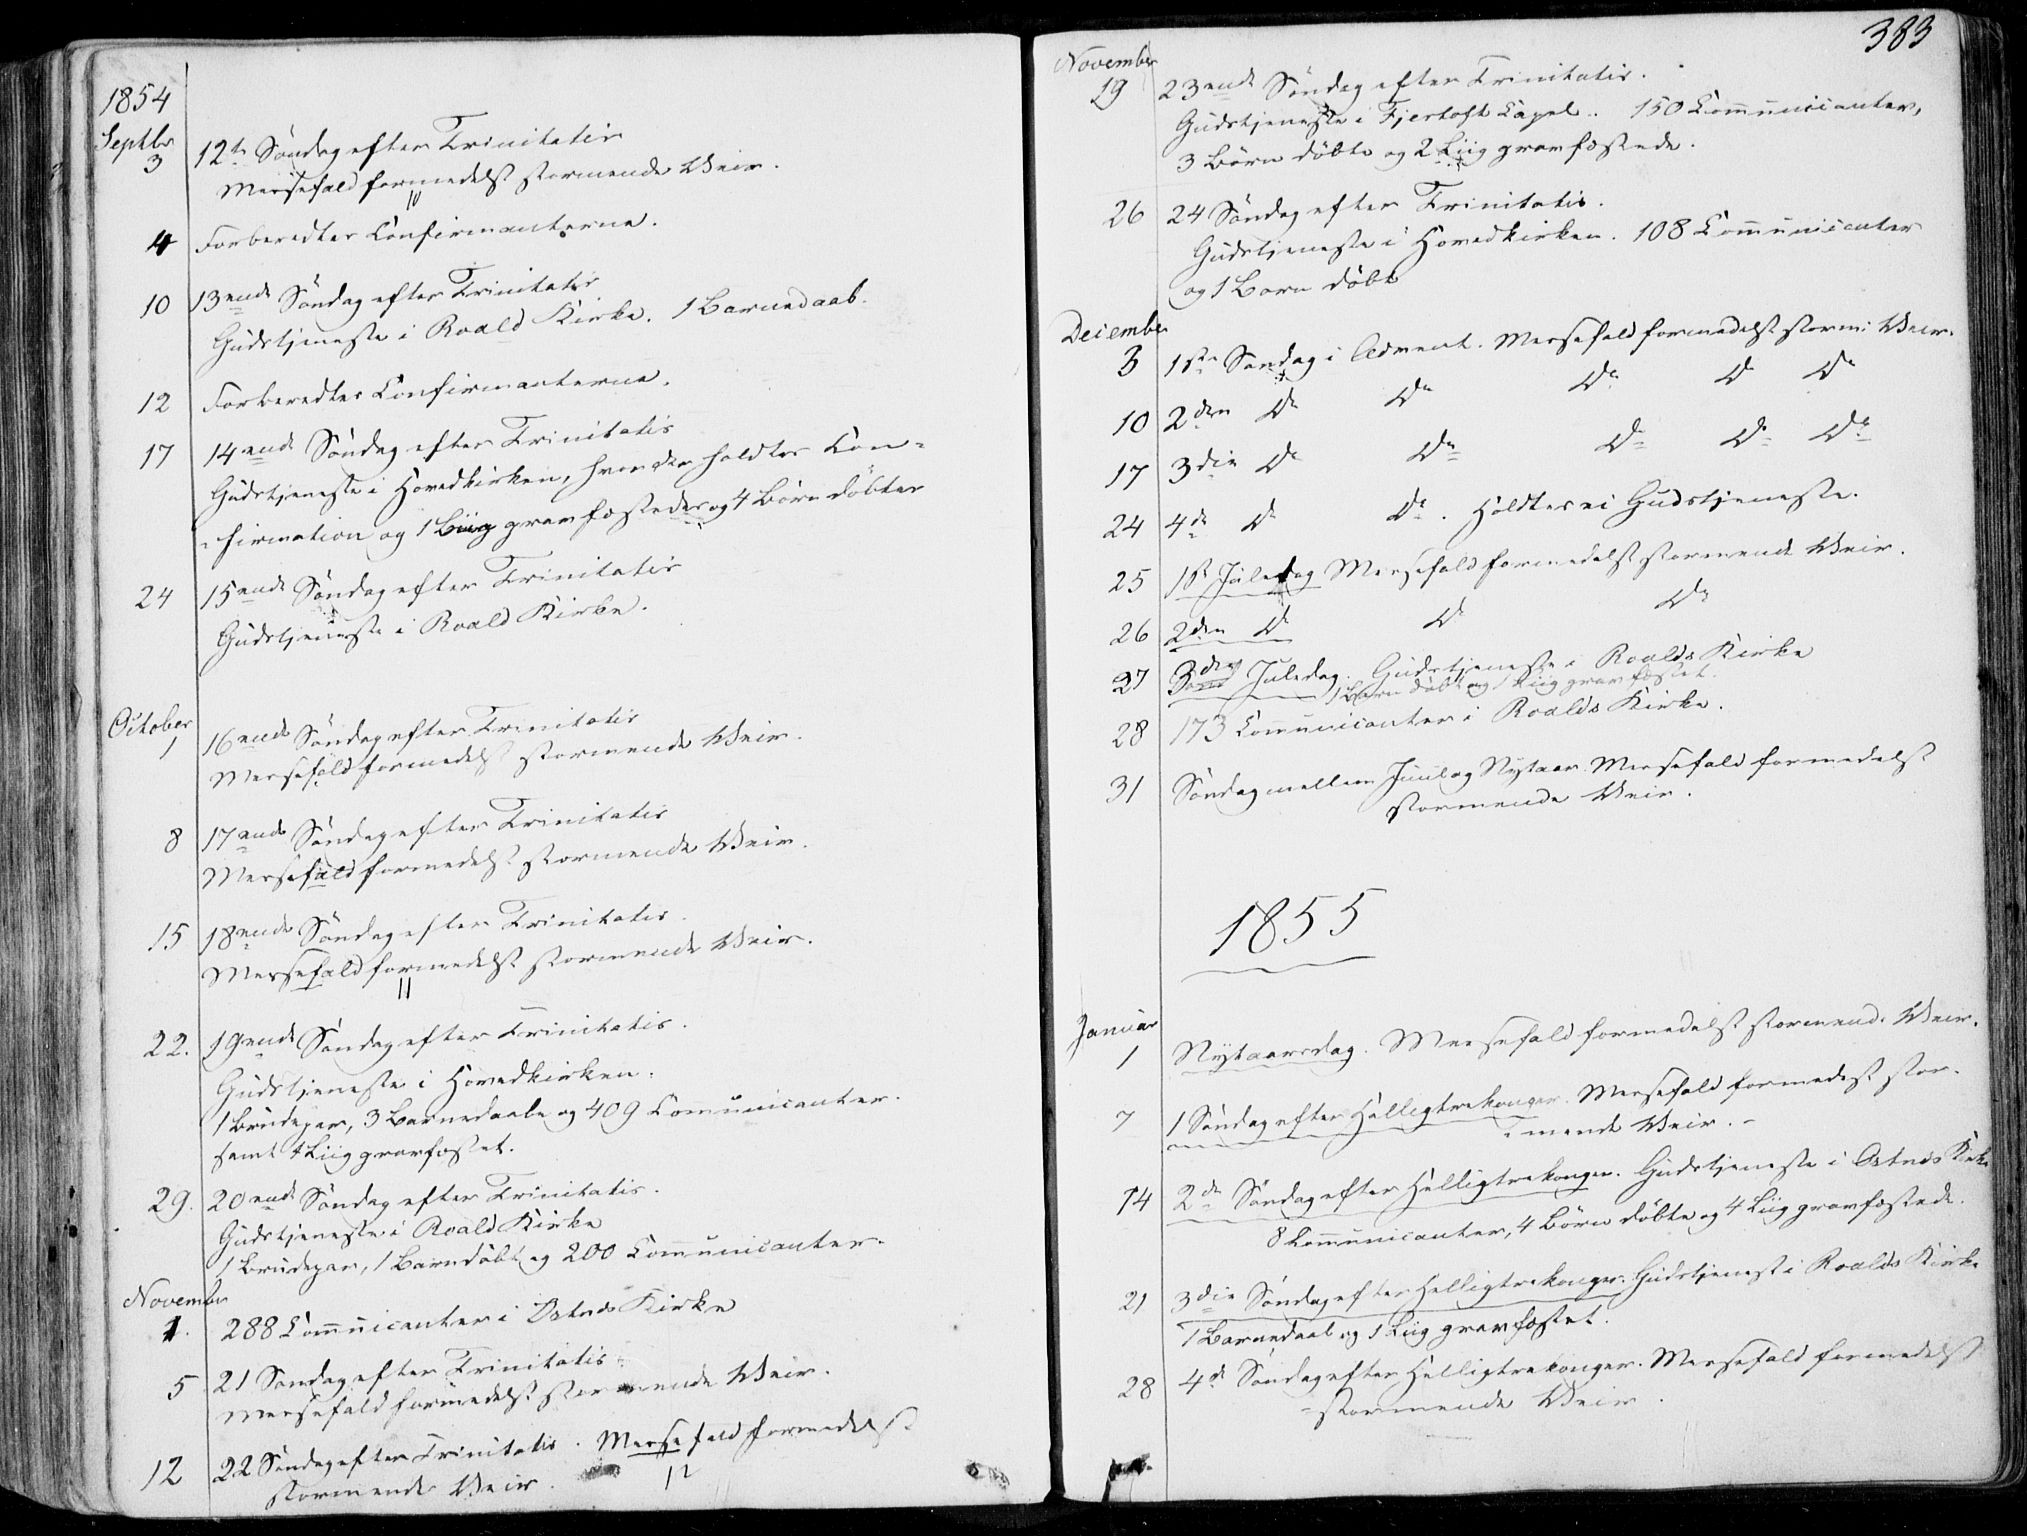 1854
Septbr
3 12te Søndag efter Trinitatis
Messefald formedelst stormende Veir.
4 Forberedtes Confirmanterne.
10 13ende Søndag efter Trinitatis
Gudstjeneste i Roald Kirke. 1 Barnedaab.
12 Forberedtes Confirmanterne.
17 14ende Søndag efter Trinitatis
Gudstjeneste i Hovedkirken, hvor der holdtes Con=
=firmation og 1 Liig gravfæstedes og 4 Børn døbtes
24 15ende Søndag efter Trinitatis
Gudstjeneste i Roald Kirke.
October
1 16ende Søndag efter Trinitatis
Messefald formedelst stormende Veir.
8 17ende Søndag efter Trinitatis
Messefald formedelst stormende Veir.
15 18ende Søndag efter Trinitatis.
Messefald formedelst stormende Veir.
11
22. 19ende Søndag efter Trinitatis.
Gudstjeneste i Hovedkirken.
1 Brudepar, 3 Barnedaabe og 409 Communicanter.
samt 4 Liig gravfæstet.
29. 20ende Søndag efter Trinitatis.
Gudstjeneste i Roald Kirke
1 Brudepar, 1 Barn døbt og 200 Communicanter.
November
1. 288 Communicanter i Østnæs Kirke
5 21 Søndag efter Trinitatis.
Messefald formedelst stormende Veir.
12 22 Søndag efter Trinitatis. Messefald formedelst
stormende Veir.
12
383
November
19 23ende Søndag efter Trinitatis.
Gudstjeneste i Fjertoft Capel. 150 Communicanter,
3 Børn døbte og 2 Liig gravfæstede.
26 24 Søndag efter Trinitatis.
Gudstjeneste i Hovedkirken. 108 Communicanter
og 1 Barn døbt
December
3 1ste Søndag i Advent. Messefald formedelst storm: Veir.
10 2den Do Do Do Do Do
17 3die Do Do Do Do Do
24 4de Do Do. Holdtes ei Gudstjeneste.
25 1st Juledag Messefald formedelst stormende Veir.
26 2den Do Do Do
27 3die Juledag. Gudstjeneste i Roalds Kirke
1 Barn døbt og 1 Liig gravfæstet.
28 173 Communicanter i Roalds Kirke.
31 Søndag mellem Juul og Nytaar. Messefald formedelst
stormende Veir.
1855
Januar
1 Nytaarsdag. Messefald formedelst stormende Veir.
7 1 Søndag efter Helligtrekonger. Messefald formedelst stor-
=mende Veir.-
14 2de Søndag efter Helligtrekonger. Gudstjeneste i Østnæs Kirke
8 Communicanter, 4 Børn døbte og 4 Liig gravfæstede.
21 3die Søndag efter Helligtrekonger. Gudstjenest i Roalds Kirke
1 Barnedaab og 1 Liig gravfæstet.
28 4de Søndag efter Helligtrekonger. Messefald formedelst
=stormende Veir.